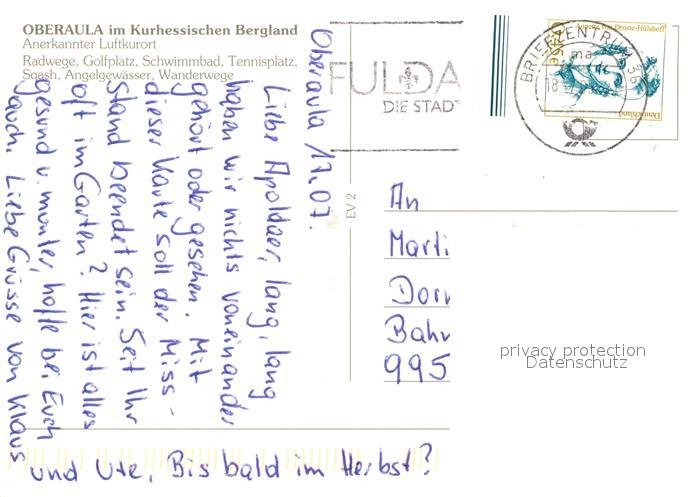 OBERAULA im Kurhessischen Bergland
Anerkannter Luftkurort
Radwege, Golfplatz, Schwimmbad, Tennisplatz,
Sqash, Angelgewässer, Wanderwege
Oberaula 17.07.
Liebe Apoldaer, lang, lang
haben wir nichts voneinander
gehört oder gesehen. Mit
dieser Karte soll der Miss-
stand beendet sein. Seid Ihr
oft im Garten? Hier ist alles
gesund u. munter, hoffe bei Euch
auch. Liebe Grüsse von Klaus
und Ute, Bis bald im Herbst?
FULDA
DIE STADT
BRIEFZENTRUM 36
ma
18
Annette von Droste-Hülshoff
Deutschland
EV 2
An
Marti
Dorn
Bahn
995
privacy protection
Datenschutz